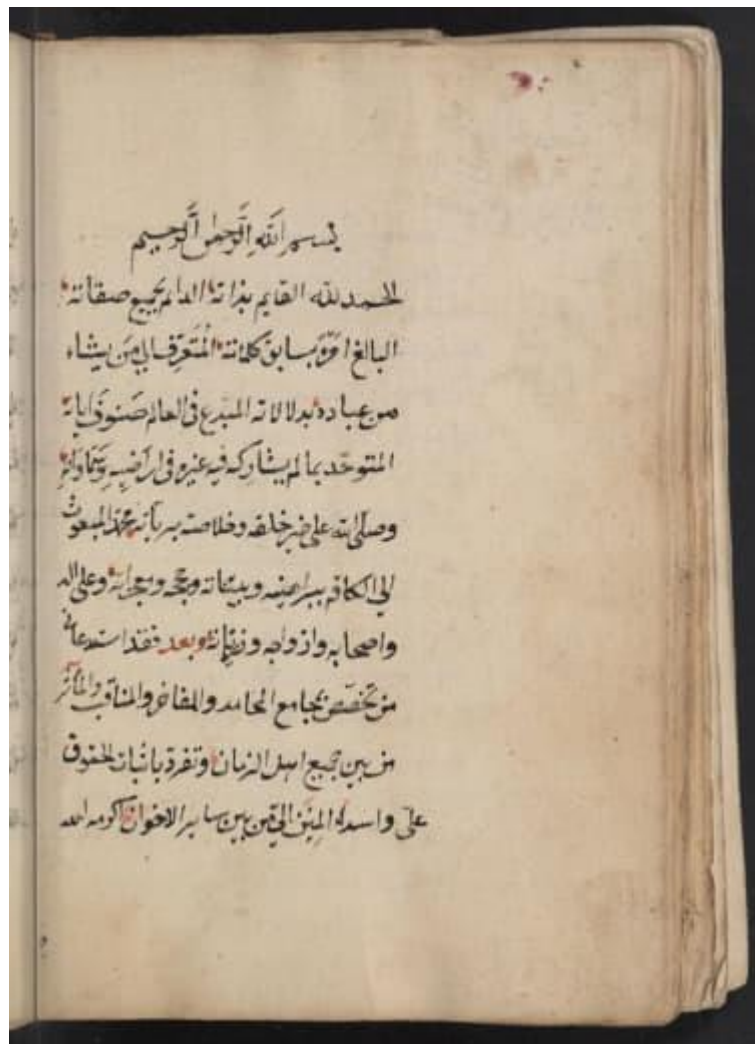 بسم اللَّه الرَّحمن الرَّحيم
الحمد لله القايم بذاته الدايم بجميع صفاته
البالغ امره بسابق كلماته المُتَعرِّف الي مَن يشاء
من عباده بدلالاته المبدع في العالم صنوف اياته
المتوحّد بمالم يشاركه فيه غيره في اراضيه وسماواته
وصلّي الله علي خير خلقه وخلاصة برياته محمد المبعوث
الي الكافه ببراهينه وبيناته وحججه ومعجزاته وعلي اله
واصحابه وازواجه وذرياته وبعد فقد استدعاني
من تخصّص بمجامع المحامد والمفاخر والمناقب والمآثر
من بين جميع اهل الزمان وتفرد باثبات الحقوق
عليّ واسداء المِنَن اليّ من بين ساير الاخوان اكرمه الله